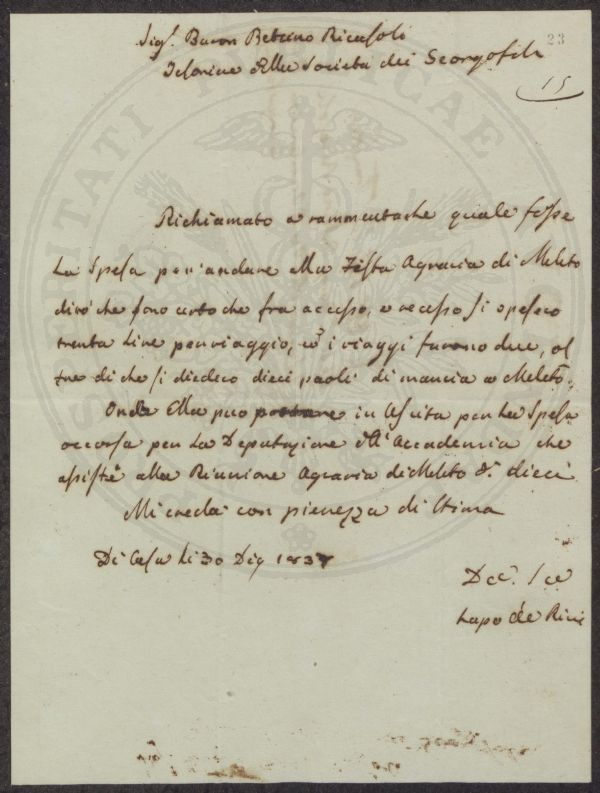 Sig.r Baron Bettino Ricasoli
23
della Società dei Georgofili
15
Richiamato a rammentarle quale fosse
La Spesa per andare alla Festa Agraria di Meleto
dirò che sono certo che fra accesso, e recesso si spesero
trenta Lire per viaggio, e i viaggi furono due, ol
tre di che si diedero dieci paoli di mancia a Meleto.
Onde Ella può portare in Escita per La Spesa
occorsa per La Deputazione dell'Accademia che
assistè alla Riunione Agraria di Meleto dieci
Mi creda con pienezza di stima
Di Casa Li 30 Dig 1837
Lapo de Ricci